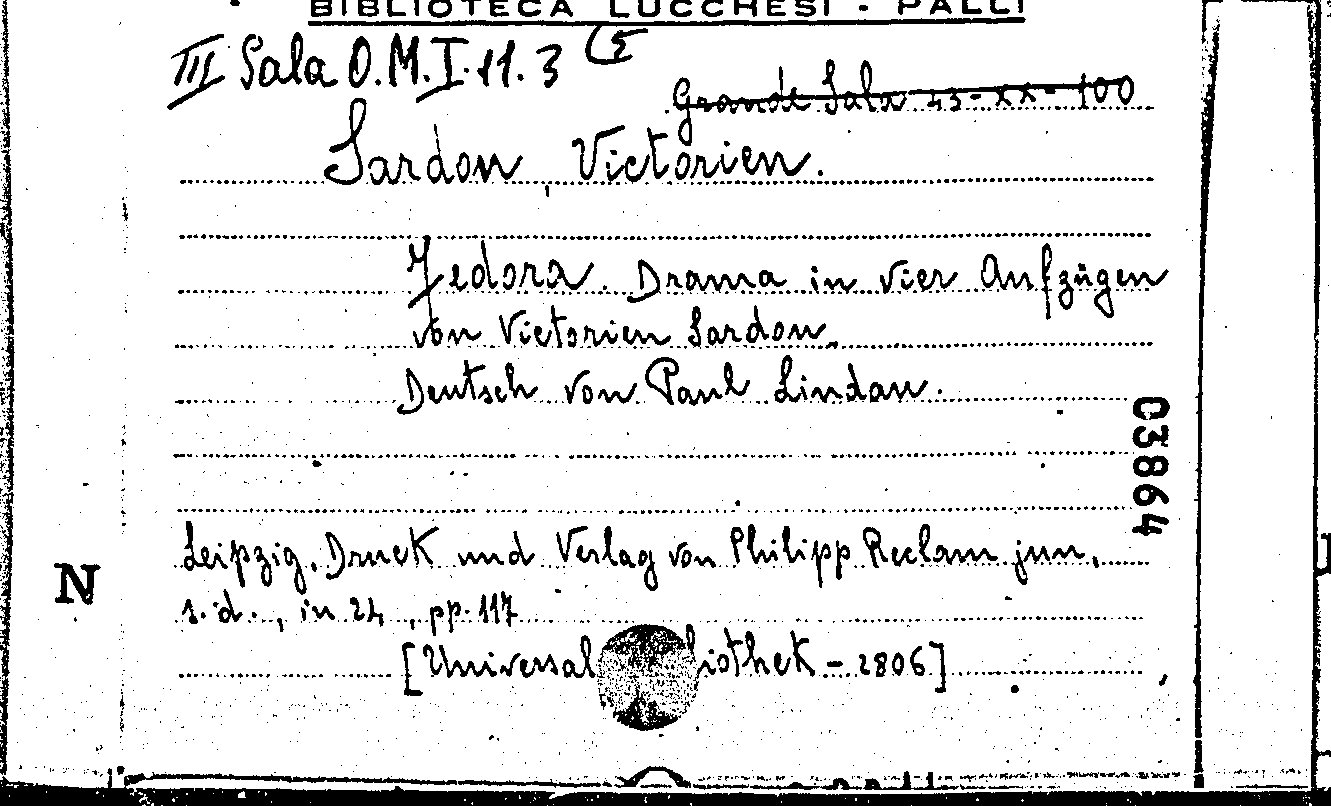 BIBLIOTECA LUCCHESI - PALLI
III Sala O.M.I.11.3
Grande Sala 23-XX-100
Sardou, Victorien.
Fedora. Drama in vier Aufzügen
von Victorien Sardou.
Deutsch von Paul Lindau.
03864
Leipzig, Druck und Verlag von Philipp Reclam jun.
s.d., in 24, pp. 117
N
[Universal iothek - 2806]